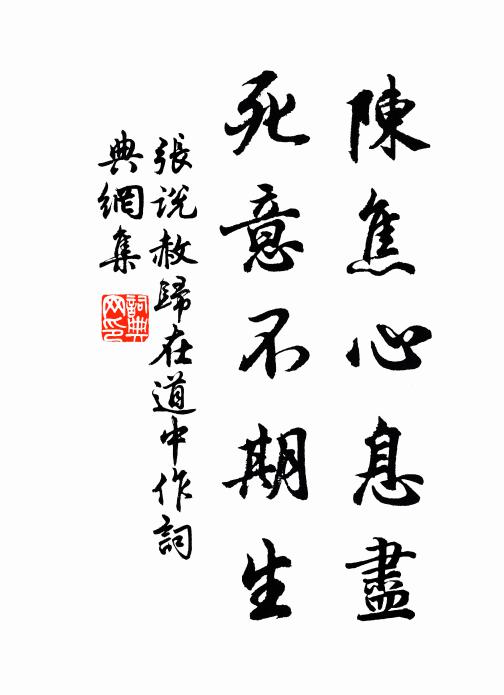 陳焦心息盡
死意不期生
張說赦歸在道中作詞
典網集
詞典
网印